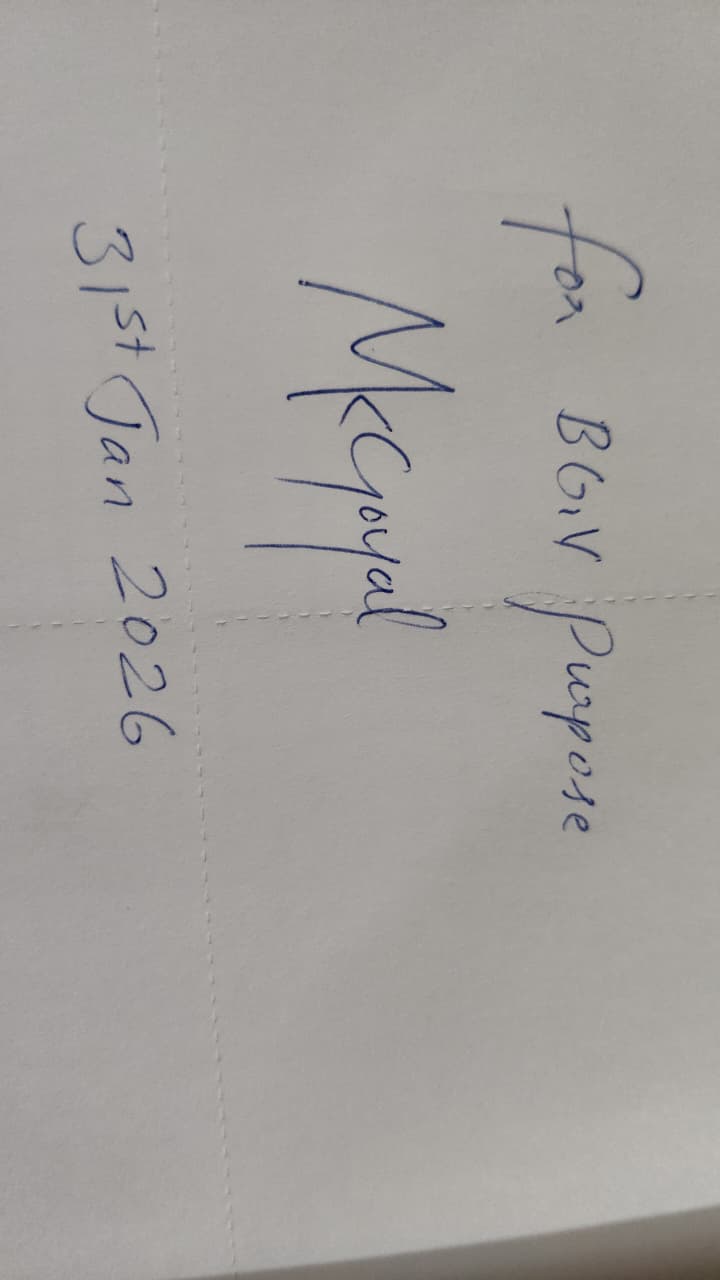 for BGV Purpose
MKGoyal
31st Jan 2026